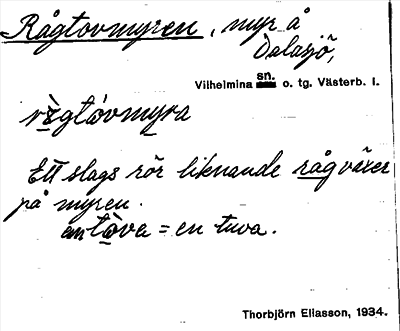 Rågtovmyren, myr å
Dalasjö,
Vilhelmina sn. o. tg. Västerb. l.
Ett slags rör liknande råg växer
på myren.
en tòva = en tuva.
Thorbjörn Eliasson, 1934.